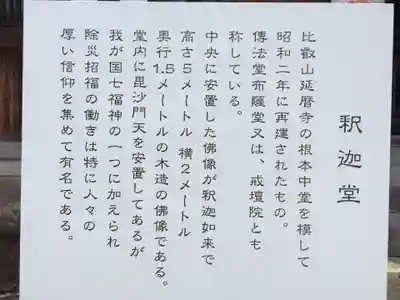 釈迦堂
比叡山延暦寺の根本中堂を模して
昭和二年に再建されたもの。
傳法堂布薩堂又は、戒壇院とも
称している。
中央に安置した佛像が釈迦如来で
高さ5メートル 横2メートル
奥行1.5メートルの木造の佛像である。
堂内に毘沙門天を安置してあるが
我が国七福神の一つに加えられ
除災招福の働きは特に人々の
厚い信仰を集めて有名である。